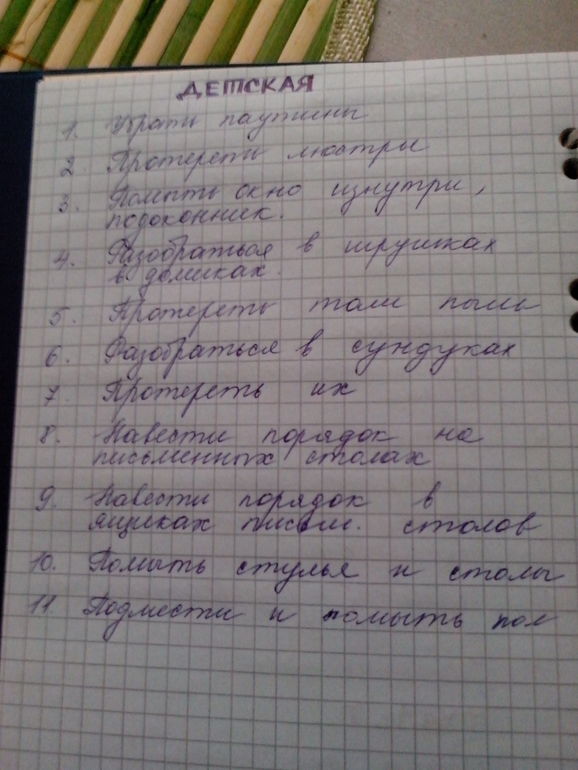 ДЕТСКАЯ
1. Убрать паутины
2. Протереть люстры
3. Помыть окно изнутри,
подоконник.
4. Разобраться в игрушках
в домиках.
5. Протереть там пыль
6. Разобраться в сундуках
7. Протереть их
8. Навести порядок на
письменных столах
9. Навести порядок в
ящиках письм. столов
10. Помыть стулья и столы
11 Подмести и помыть пол